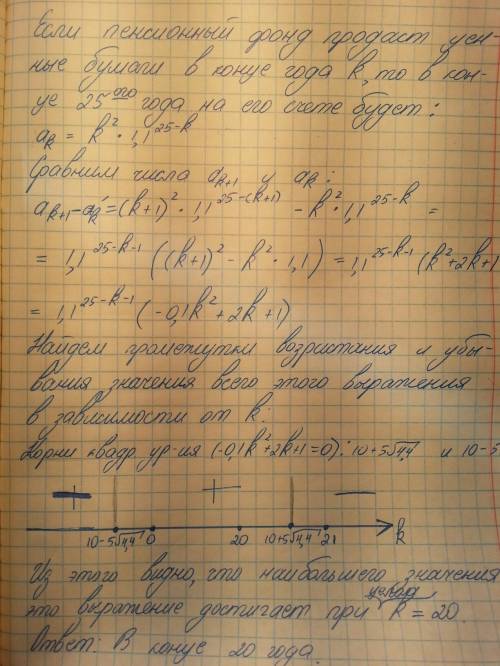 Если пенсионный фонд продаст цен-
ные бумаги в конце года k, то в кон-
це 25ого года на его счете будет:
a_k = k² · 1,1^(25-k)
Сравним числа a_(k+1) и a_k:
a_(k+1) - a_k = (k+1)² · 1,1^(25-(k+1)) - k² · 1,1^(25-k) =
= 1,1^(25-k-1) ((k+1)² - k² · 1,1) = 1,1^(25-k-1) (k²+2k+1
= 1,1^(25-k-1) (-0,1k² + 2k + 1)
Найдем промежутки возрастания и убы-
вания значения всего этого выражения
в зависимости от k:
Корни квадр ур-ия (-0,1k²+2k+1=0): 10+5√4,4 и 10-5
+ —
10-5√4,4 0 20 10+5√4,4 21 k
Из этого видно, что наибольшего значения
это выражение достигает при целом k = 20.
Ответ: В конце 20 года.